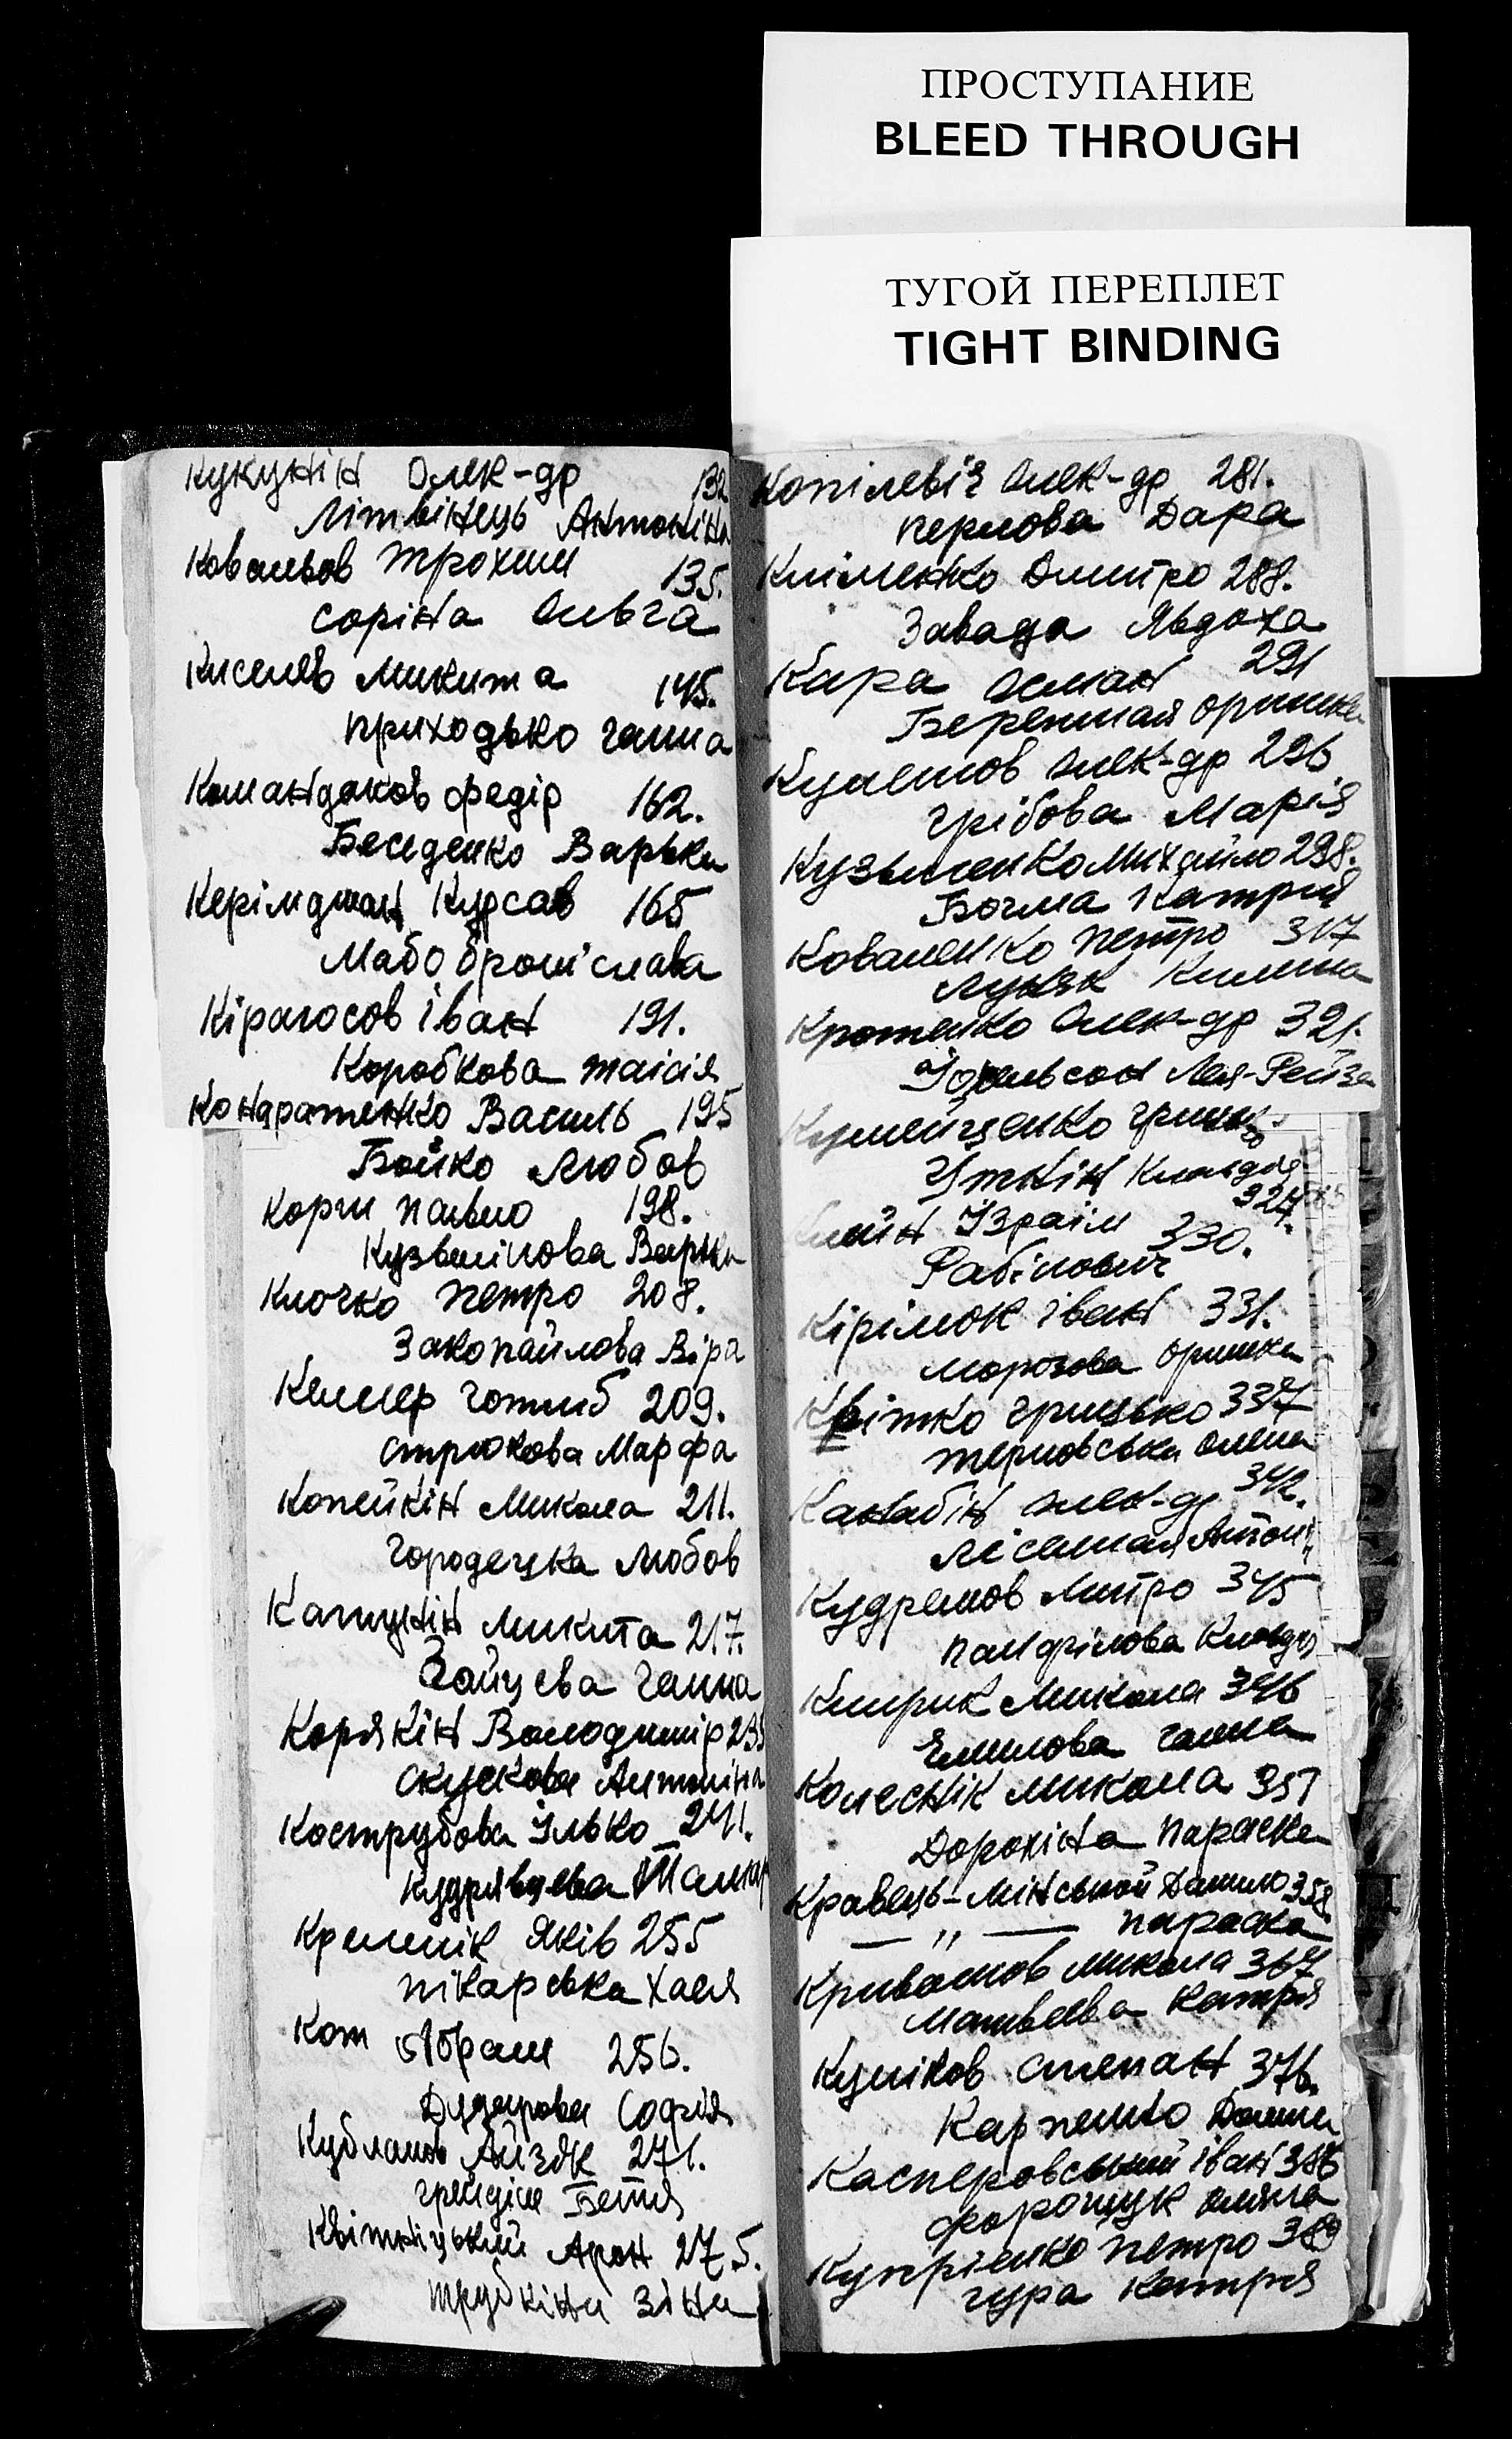 ПРОСТУПАНИЕ
BLEED THROUGH
ТУГОЙ ПЕРЕПЛЕТ
TIGHT BINDING
Кукунін Олек-др 132
Літвінець Антоніна
Ковальов Трохим 135.
Соріна Ольга
Кисельов Микита 145.
Приходько Ганна
Командаков Федір 162.
Беседенко Варька
Керімджан Курсав 165
Мабо Броніслава
Кірагосов Іван 191.
Коробкова Таісія
Кондратенко Василь 195
Бойко Любов
Корж Павло 198.
Кузьмінова Варька
Клочко Петро 208.
Закопайлова Віра
Келлер Готлиб 209.
Стрюкова Марфа
Копейкін Микола 211.
Городецка Любов
Капункін Микита 217.
Зайцева Ганна
Корякін Володимир 235
Антоніна
Кострубова Ілько 241.
Кудрявцева Тамар
Кремнік Яків 255
Пікарська Хая
Кот Абрам 256.
Дударова Софія
Кубланов Айзик 271.
Грендіж Бетя
Квітніцький Арон 275.
Трубкіна Зіна
Копілевіч Олек-др 281.
Перлова Дара
Кліменко Дмитро 288.
Завада Явдоха
Кара Осман 291
Оришка
Кулешов Олек-др 296
Грібова Марія
Кузьменко Михайло 298.
Бочма Катря
Коваленко Петро 317
Луняк Килина
Кротенко Олек-др 321.
Лея-Рейза
Гринько
Уткін Клавдія
327.
Клейн Ізраіл 330.
Рабінович
Кірілюк Іван 331.
Морозова Оришка
Квітко Грицько 337
Терновська Олена
Канабін Олек-др 342.
Лісашая Антоні
Кудрешов Митро 345
Панфілова Клавдія
Кирик Микола 346
Ганна
Колеснік Микола 357
Дорохіна Параска
Кравець-Мінський Данило 358.
— " — Параска
Кривошов Микола 367
Матвеева Катря
Куліков Степан 376.
Карпенко Домна
Касперовський Іван 386
Форощук Уляна
Купріенко Петро 389
Гура Катря